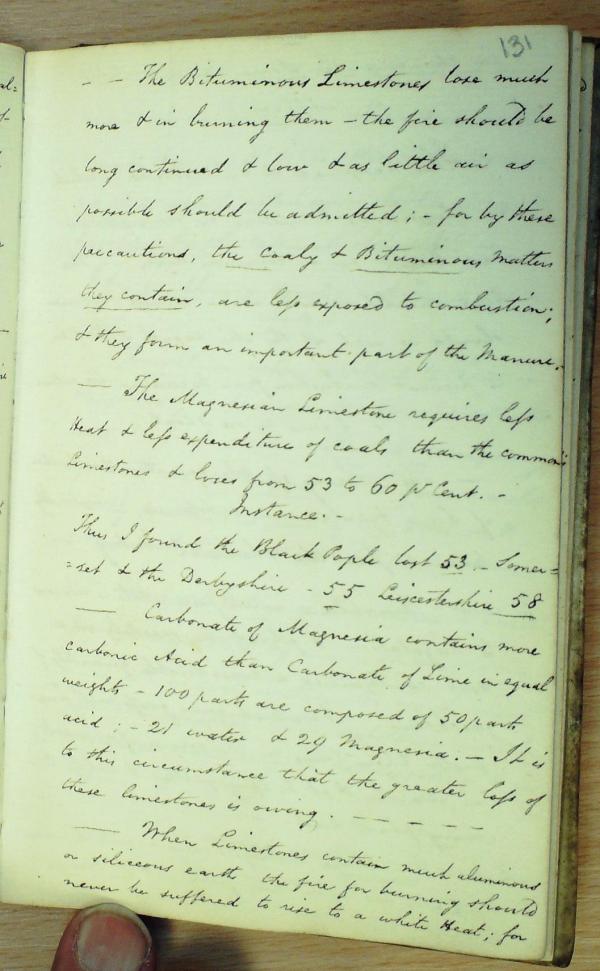 131
- - The Bituminous Limestones lose much
more & in burning them - the fire should be
long continued & low & as little air as
possible should be admitted; - for by these
precautions, the Coaly & Bituminous Matters
they contain, are less exposed to combustion;
& they form an important part of the Manure.
— The Magnesian Limestone requires less
Heat & less expenditure of coals than the common
Limestones & loses from 53 to 60 pr Cent. -
Instance. -
Thus I found the Black Pople lost 53 - Somer=
=set & the Derbyshire - 55 Leicestershire 58
— Carbonate of Magnesia contains more
carbonic Acid than Carbonate of Lime in equal
weights - 100 parts are composed of 50 parts
acid; - 21 water & 29 Magnesia. - It is
to this circumstance that the greater loss of
these limestones is owing. - - - -
— When Limestones contain much aluminous
or siliceous earth the fire for burning should
never be suffered to rise to a white Heat; for